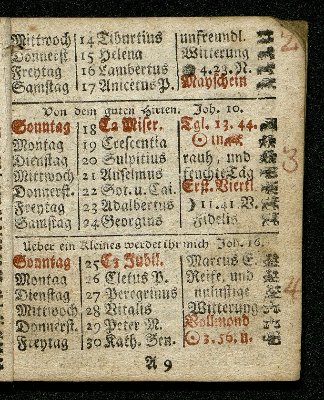 Mittwoch 14 Tiburtius unfreundl.
Donnerst 15 Helena Witterung
Freytag 16 Lambertus 4.23.N.
Samstag 17 Anicetus P. Mayschein
2
Von dem guten Hirten. Joh. 10.
Sonntag 18 C2 Miser. Tgl. 13. 44.
Montag 19 Crescentia ☉ in
Dienstag 20 Sulpitius rauh, und
Mittwoch 21 Anselmus feuchte Täg
Donnerst. 22 Sot. u. Cai. Erst. Viertl.
Freytag 23 Adalbertus 11.41. V.
Samstag 24 Georgius Fidelis
3
Ueber ein Kleines werdet ihr mich Joh. 16.
Sonntag 25 C3 Jubil. Marcus E.
Montag 26 Cletus P. Reife, und
Dienstag 27 Peregrinus unlustige
Mittwoch 28 Vitalis Witterung
Donnerst. 29 Peter M. Vollmond
Freytag 30 Kath. Sen. 3.56.n.
4
A 9